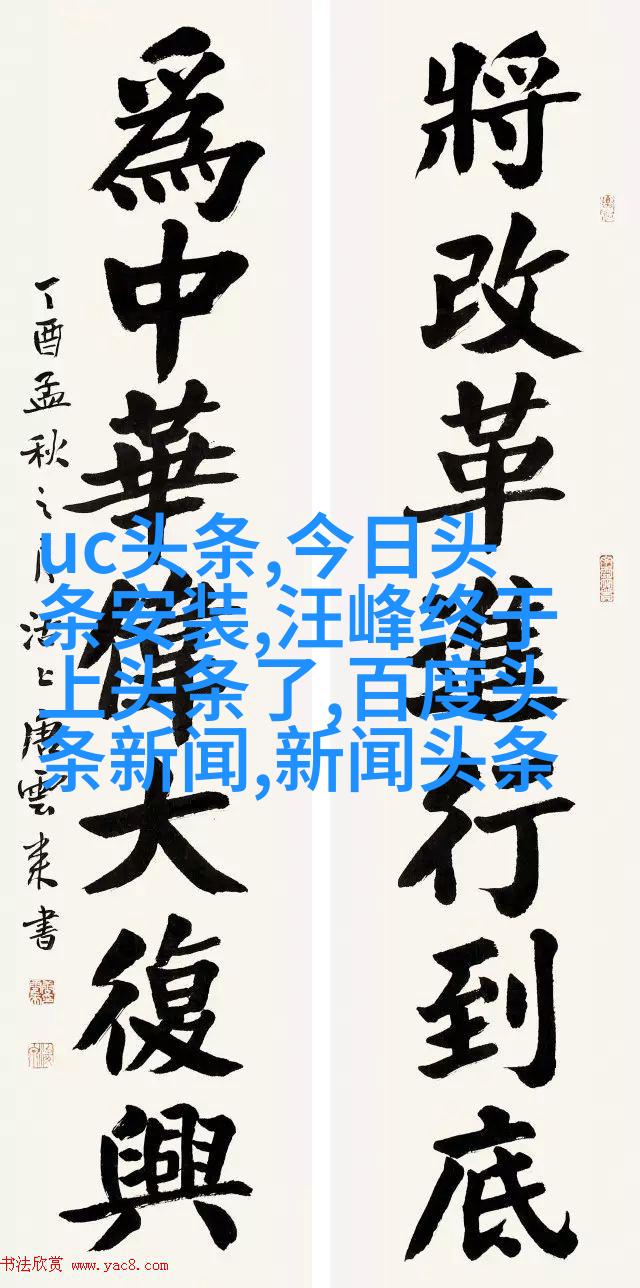 將改革進行到底
爲中華偉大復興
丁酉孟秋之月上唐雲来書
uc头条,今日头
条安装,汪峰终于
上头条了,百度头
条新闻,新闻头条
书法欣赏 www.yac8.com